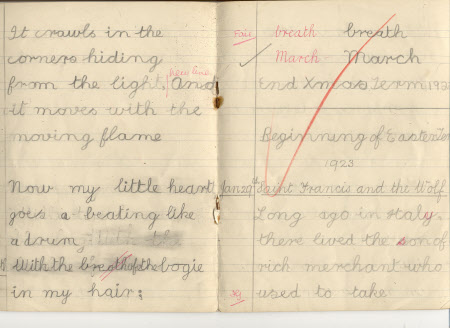 It crawls in the
corners hiding
new line
from the light, And
it moves with the
moving flame
Now my little heart
goes a beating like
a drum, with the
With the breath of the bogie
in my hair;
Fair breath breath
March March
End Xmas Term 192
Beginning of Easter Ter
1923
Jan 29th Saint Francis and the Wolf
Long ago in Italy
there lived the son of
rich merchant who
used to take